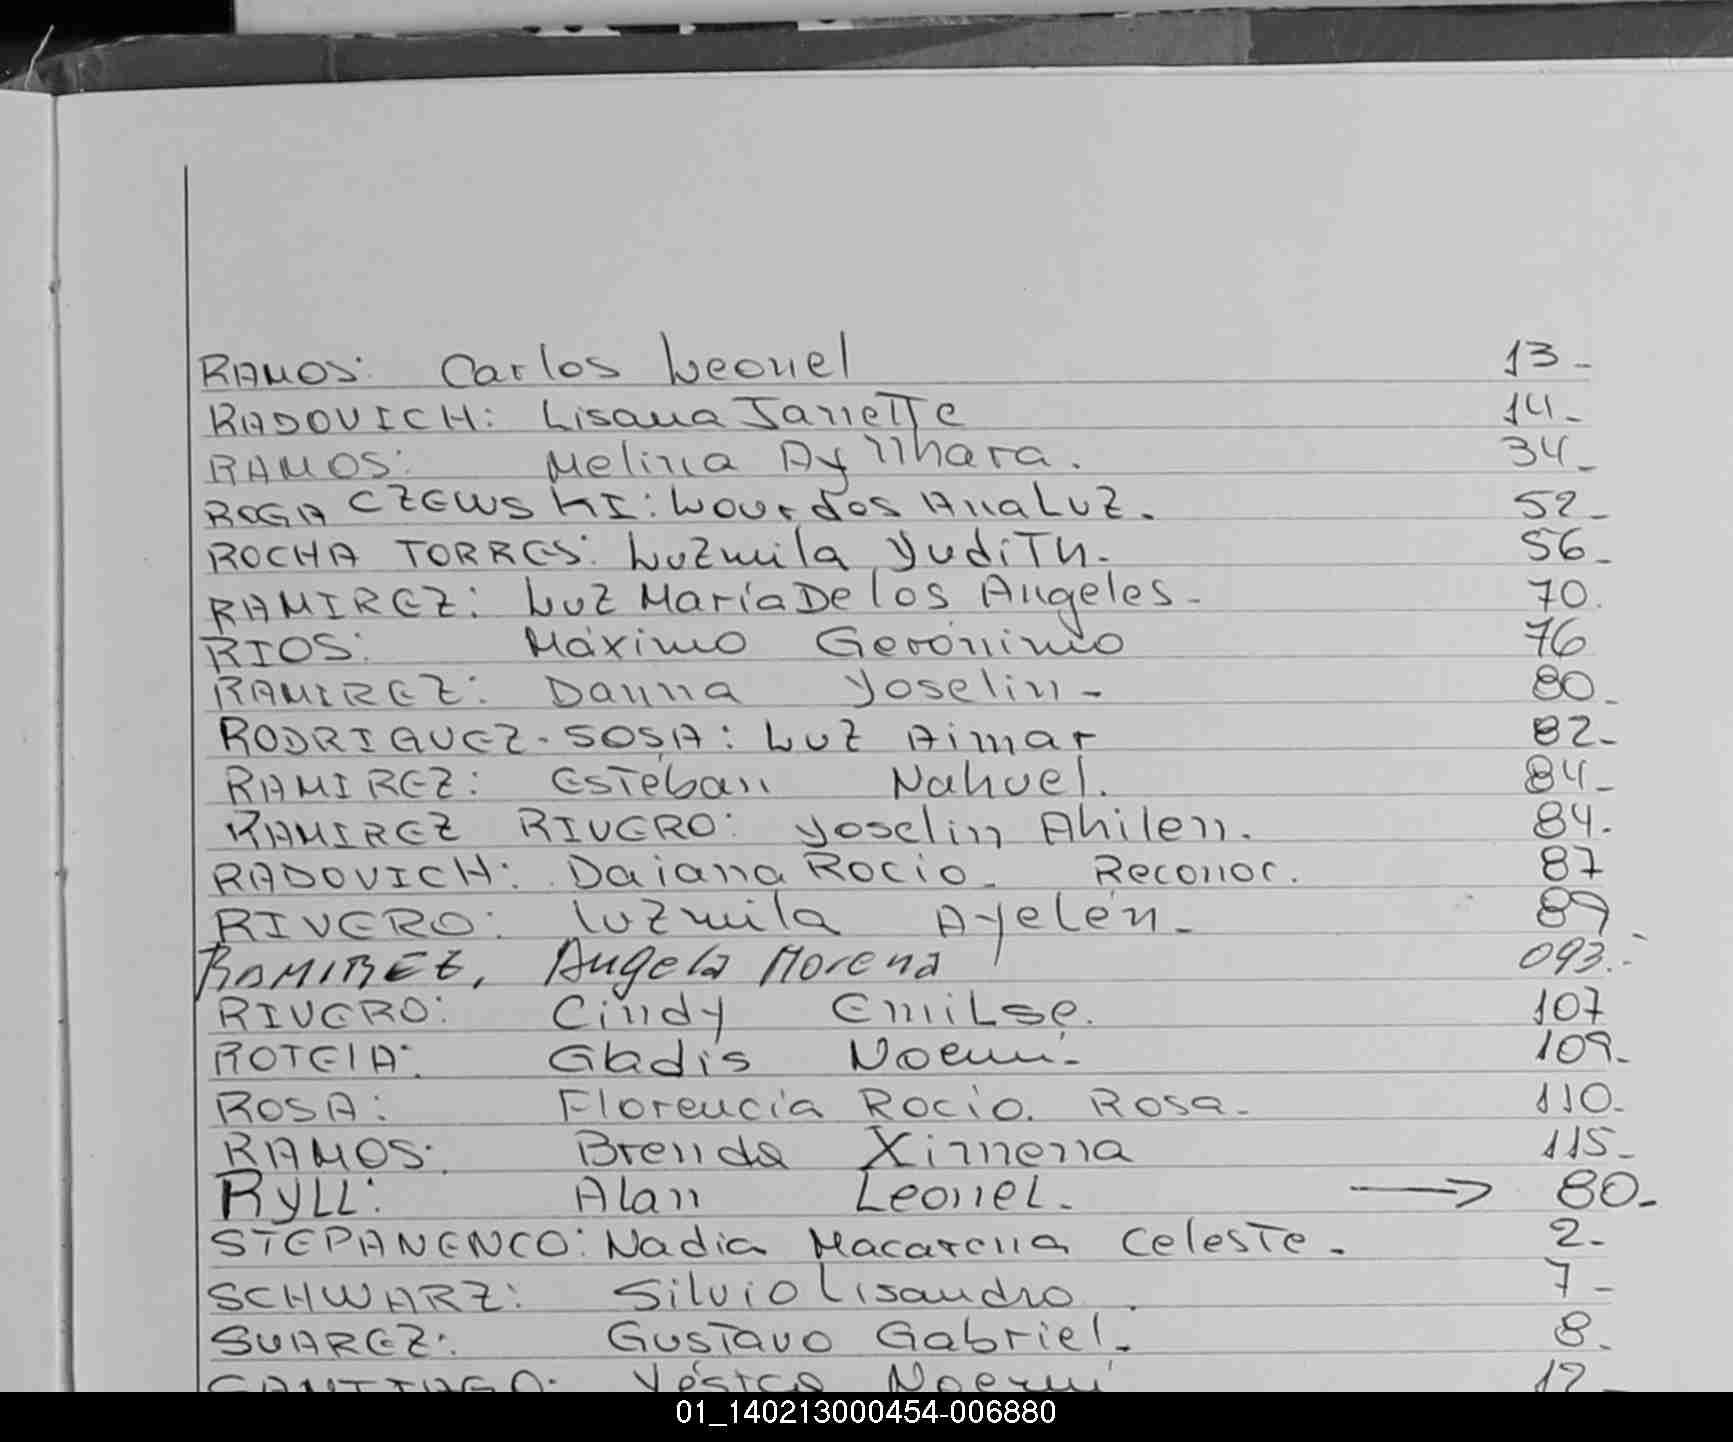 RAMOS: Carlos Leonel 13-
RADOVICH: Lisana Janette 14-
RAMOS: Melina Ayllhara. 34-
ROGACZEWSKI: Lourdes Ana Luz. 52-
ROCHA TORRES: Luzmila Yudith. 56-
RAMIREZ: Luz María De los Angeles- 70.
RIOS: Máximo Gerónimo 76
RAMIREZ: Danna Yoselin- 80-
RODRIGUEZ-SOSA: Luz Aimar 82-
RAMIREZ: Esteban Nahuel. 84-
RAMIREZ RIVERO: Yoselin Ahilen. 84.
RADOVICH: Daiana Rocio- Reconoc. 87
RIVERO: Luzmila Ayelén- 89-
RAMIREZ, Angela Morena 093.-
RIVERO: Cindy Emilse. 107
ROTELA: Gladis Noemí- 109-
ROSA: Florencia Rocio. Rosa- 110-
RAMOS: Brenda Ximena 115-
RYLL: Alan Leonel- → 80-
STEPANENCO: Nadia Macarena Celeste- 2-
SCHWARZ: Silvio Lisandro. 7-
SUAREZ: Gustavo Gabriel- 8.
SANTIAGO: Yésica Noemí 12-
01_140213000454-006880